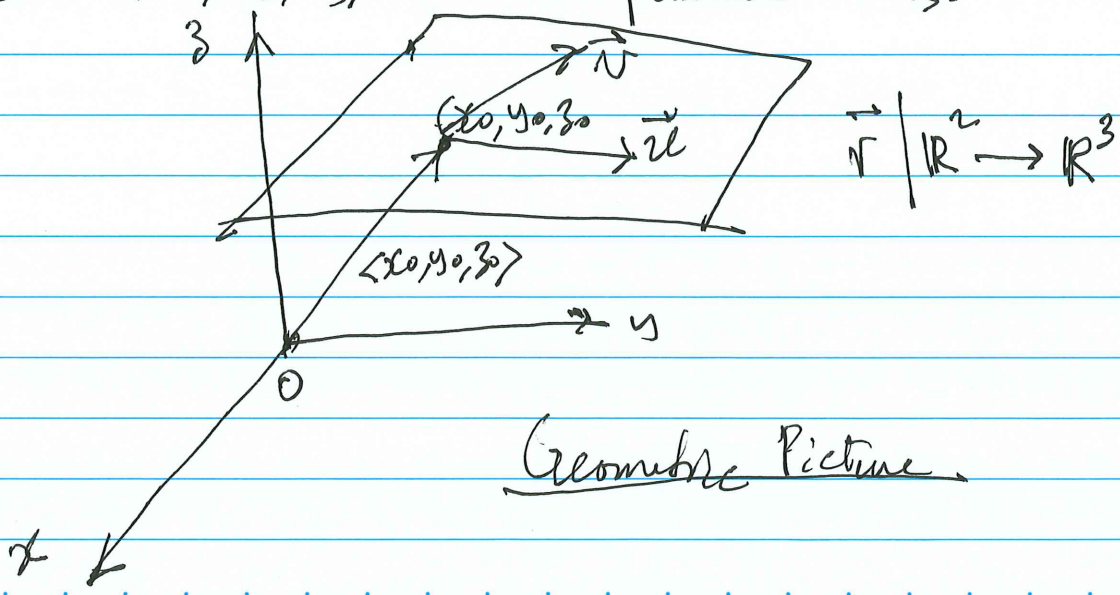 z
→v
(x₀, y₀, z₀
→u
→r | ℝ² → ℝ³
<x₀, y₀, z₀>
y
O
Geometric Picture
x